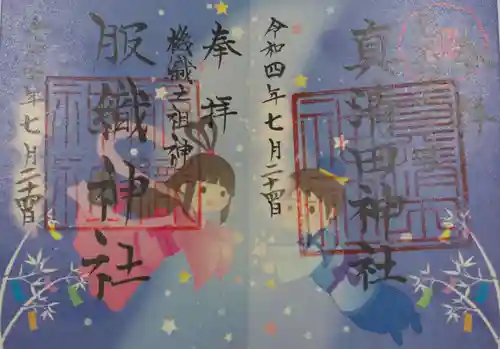 奉拝
真清田神社
令和四年七月二十四日
奉拝
機織之祖神
服織神社
令和四年七月二十四日